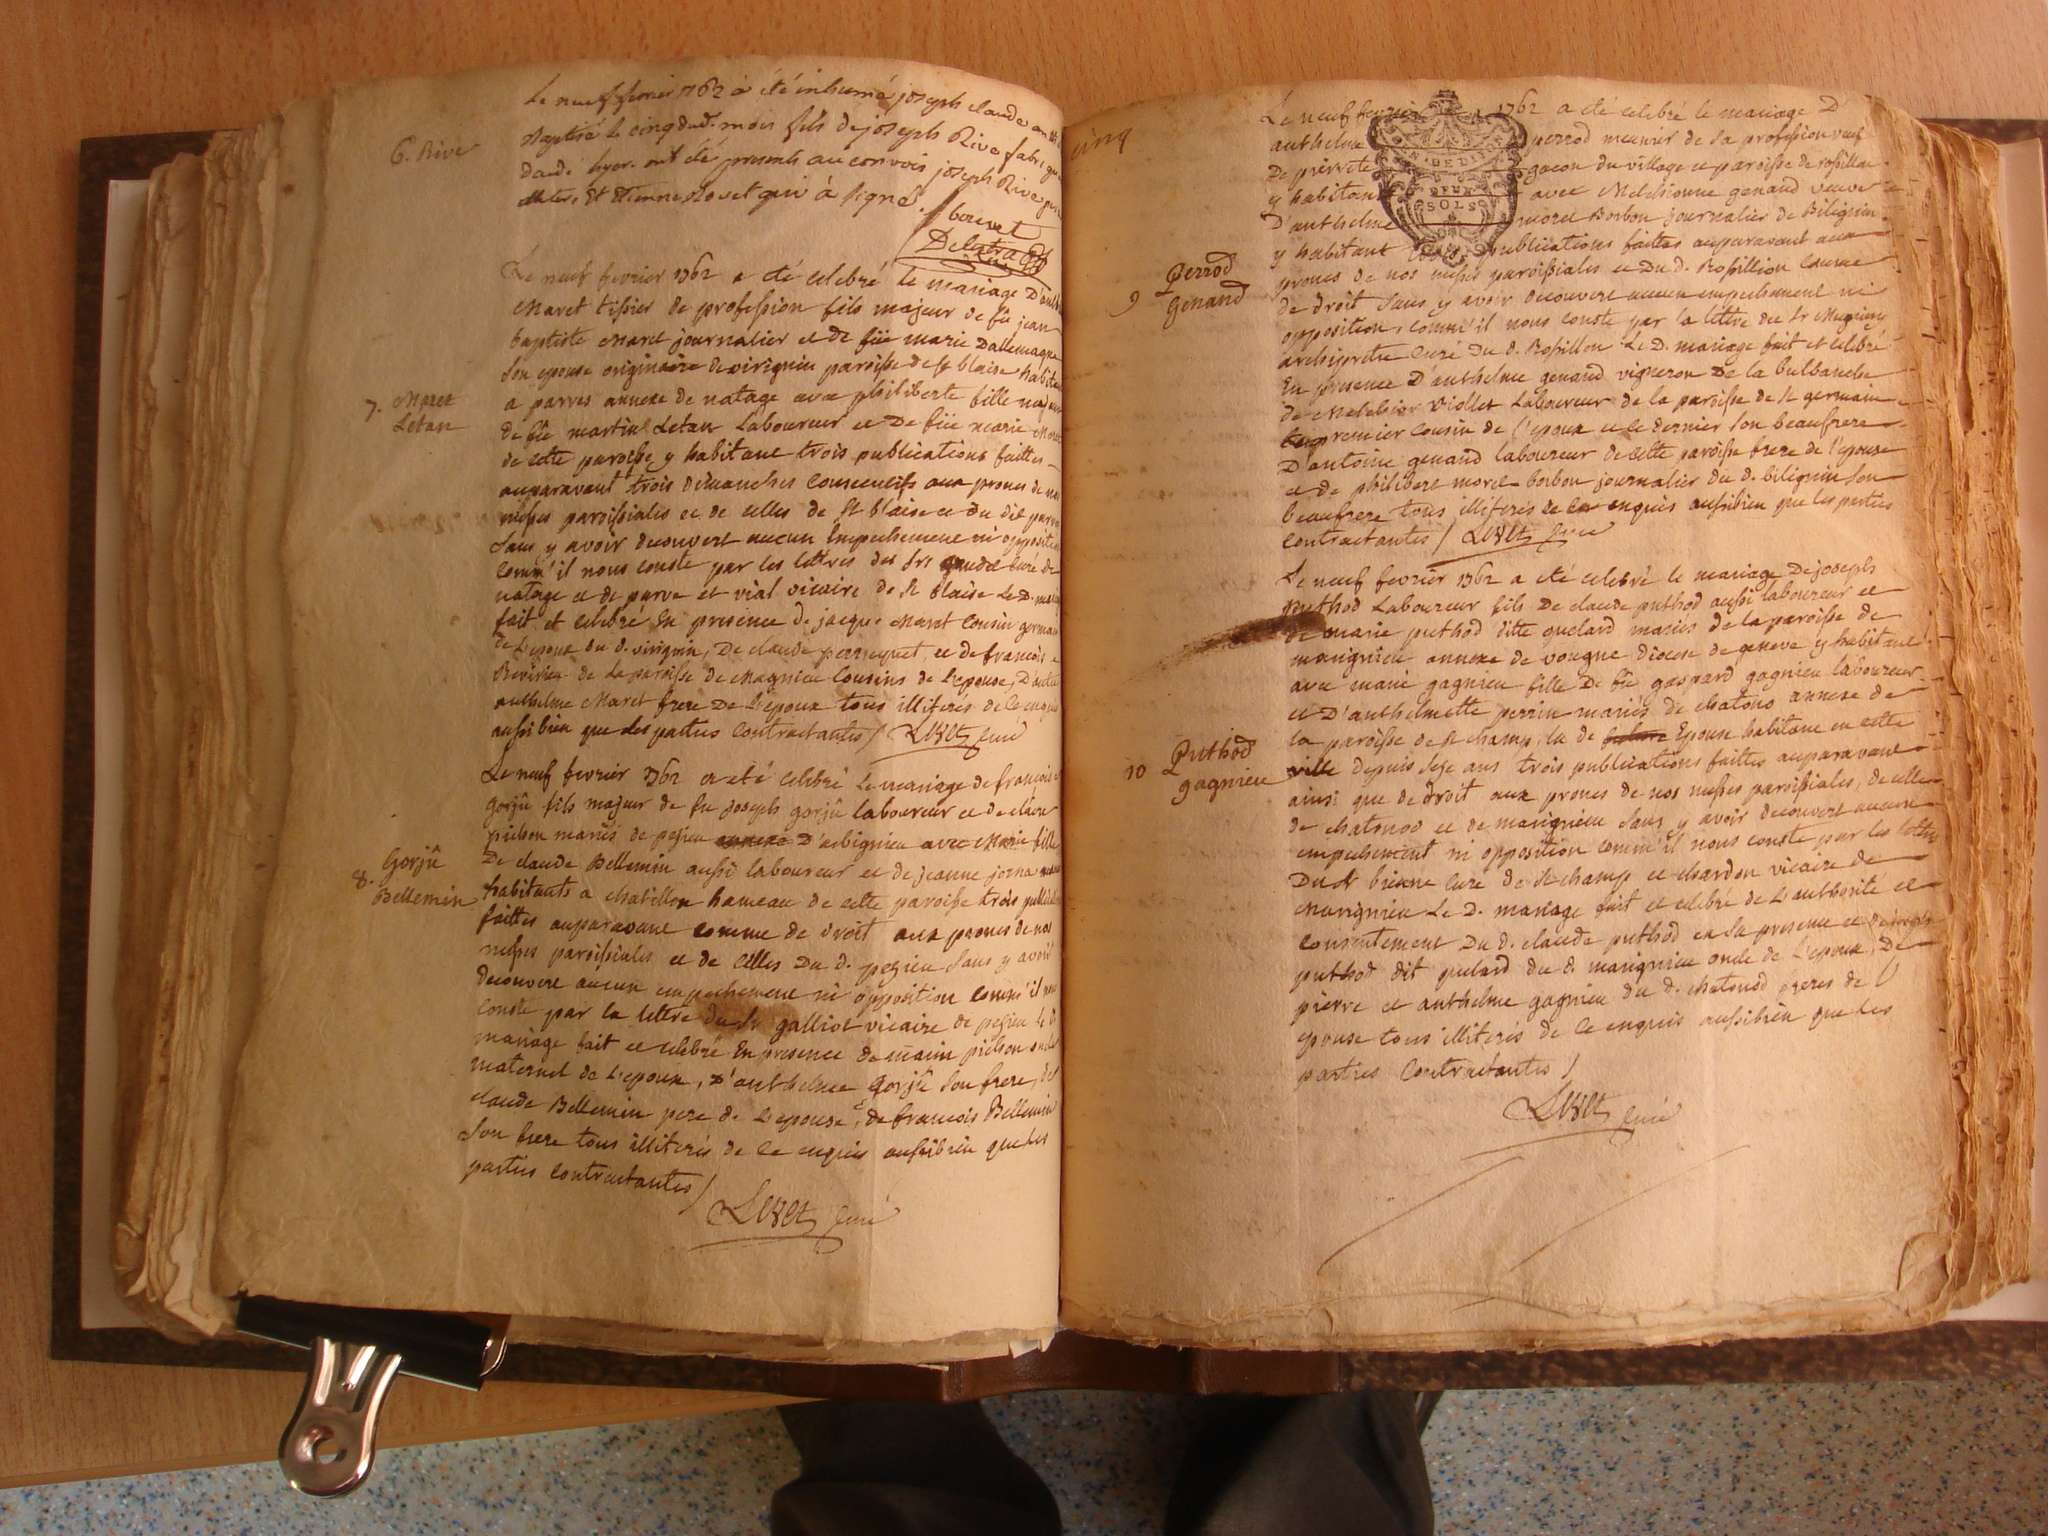 6. Rive
Le neuf fevrier 1762 à été inhumé joseph claude
Baptisé le cinq dud. mois fils de joseph Rive
ont été presents au convois joseph Rive
Et Etienne qui à signé
7. Maret
Letan
Le neuf fevrier 1762 a été celebré le mariage D'
Maret tissier de profession fils majeur de fû jean
baptiste Maret journalier et de füe marie Dallemagne
son epouse originaire de virignin paroisse de st blaise
a parves annexe de natage avec philiberte fille majeure
de fû martin Letan Laboureur et De füe marie
de cette paroisse y habitant trois publications faittes
auparavant trois dimanches consecutifs aux prones de nos
messes paroissiales et de celles de st blaise et du dit parve
sans y avoir decouvert aucun Empechement ni opposition
comm' il nous conste par les lettres des srs curé de
natage et de parve et vial vicaire de st blaise Le D. mariage
fait et celebré En presence de jacque Maret cousin germain
de L'epoux du d. virignin, De claude perrequet, et de francois
de La paroisse de Magnieu cousins de l'epouse, D'autre
anthelme Maret frere De L'epoux tous illiterés de ce enquis
aussi bien que les parties contractantes / Luzet curé
8. Gorjû
Bellemin
Le neuf fevrier 1762 a été celebré Le mariage de francois
gorjû fils majeur de fu joseph gorjû laboureur et de claire
pichon mariés de pezieu annexe D'arbignieu avec Marie fille
De claude Bellemin aussi laboureur et de jeanne jorna
habitants a chatillon hameau de cette paroisse trois publications
faittes auparavant comme de droit aux prones de nos
messes paroissiales et de celles Du d. pezieu sans y avoir
decouvert aucun empechement ni opposition comm' il nous
conste par la lettre du Sr galliot vicaire de pezieu Le D.
mariage fait et celebré En presence de pichon oncle
maternel de L'epoux, D'anthelme gorjû son frere, de
claude Bellemin pere de L'epouse, de francois Bellemin
son frere tous illiterés de ce enquis aussi bien que les
parties contractantes /
Luzet curé
cinq
DEUX
SOLS
9 Perrod
Genand
Le neuf fevrier 1762 a été celebré le mariage D'
anthelme perrod meunier de sa profession veuf
De pierrette gacon du village et paroisse de rossillon
y habitant avec Melchionne genand veuve
D'anthelme morel Borbon journalier de Bilignin
y habitant trois publications faittes auparavant aux
prones de nos messes paroissiales et Du d. Rossillion comme
de droit sans y avoir decouvert aucun empechement ni
opposition, comm' il nous conste par la lettre du Sr
archiprétre curé Du d. Rossillon Le D. mariage fait et celebré
En presence D'anthelme genand vigneron De la bulbanche
de Melchior Viollet Laboureur de la paroisse de st germain
le premier cousin de l'epoux et le dernier son beaufrere
D'antoine genand laboureur de cette paroisse frere de l'epouse
et de philibert morel borbon journalier du d. bilignin son
beaufrere tous illiterés de ce enquis aussi bien que les parties
contractantes / Luzet curé
10 Puthod
gagnieu
Le neuf fevrier 1762 a été celebré le mariage De joseph
puthod Laboureur fils De claude puthod aussi laboureur et
de marie puthod ditte quelard mariés de la paroisse de
marignieu annexe de vongne diocese de geneve y habitant
avec marie gagnieu fille De fû gaspard gagnieu laboureur
et D'anthelmette perrin mariés de chatono annexe de
la paroisse de st champ, la de Epouse habitant en cette
ville depuis seze ans trois publications faittes auparavant
ainsi que de droit aux prones de nos messes paroissiales, de celles
de chatonod et de marignieu sans y avoir decouvert aucun
empechement ni opposition comm' il nous conste par les lettres
Du Sr curé de st champ et chardon vicaire de
marignieu Le D. mariage fait et celebré de L'authorité et
consentement Du d. claude puthod en sa presence et de
puthod dit quelard du d. marignieu oncle de L'epoux, De
pierre et anthelme gagnieu du d. chatonod freres de l'
epouse tous illiterés de ce enquis aussi bien que les
parties contractantes /
Luzet curé